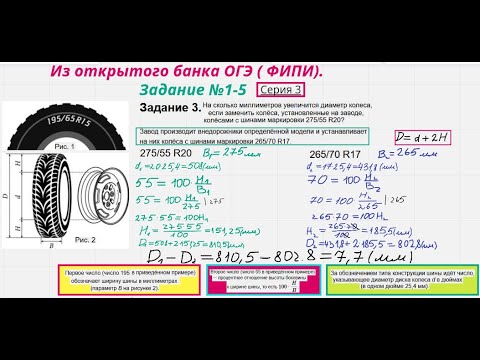 Из открытого банка ОГЭ ( ФИПИ).
Задание №1-5
Серия 3
Задание 3. На сколько миллиметров увеличится диаметр колеса,
если заменить колёса, установленные на заводе,
колёсами с шинами маркировки 275/55 R20?
195/65R15
Рис. 1
Завод производит внедорожники определённой модели и устанавливает
на них колёса с шинами маркировки 265/70 R17.
D = d + 2H
275/55 R20 B₁ = 275мм
d₁ = 20·25,4 = 508(мм)
55 = 100· H₁/B₁
55 = 100· H₁/275 | ·275
275·55 = 100H₁
H₁ = 275·55/100 = 151,25(мм)
265/70 R17 B₂ = 265мм
d₂ = 17·25,4 = 431,8(мм)
70 = 100· H₂/B₂
70 = 100· H₂/265 | ·265
265·70 = 100H₂
H₂ = 265·70/100 = 185,5(мм)
D₂ = 431,8 + 2·185,5 = 802,8мм
D₁ - D₂ = 810,5 - 802,8 = 7,7 (мм)
H
D
d
H
B
Рис. 2
Первое число (число 195 в приведённом примере)
обозначает ширину шины в миллиметрах
(параметр B на рисунке 2).
Второе число (число 65 в приведённом примере)
– процентное отношение высоты боковины
к ширине шины, то есть 100· H/B
За обозначением типа конструкции шины идёт число,
указывающее диаметр диска колеса d в дюймах
(в одном дюйме 25,4 мм).